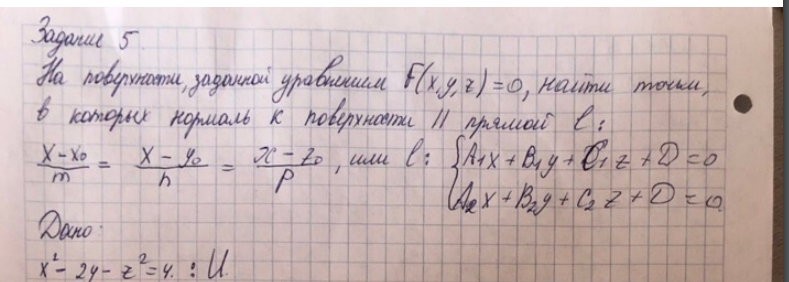 Задание 5
На поверхности, заданной уравнением F(x,y,z)=0, найти точки,
в которых нормаль к поверхности || прямой l:
x-x₀/m = x-y₀/n = x-z₀/p, или l: {A₁x+B₁y+C₁z+D=0
A₂x+B₂y+C₂z+D=0
Дано:
x²-2y-z²=4. : U.